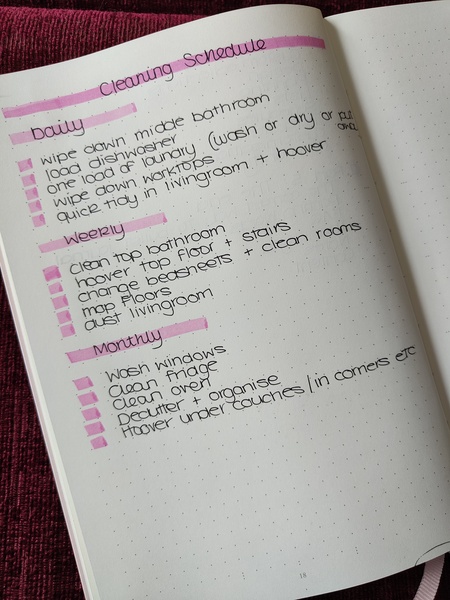 Cleaning Schedule
Daily
wipe down middle bathroom
load dishwasher
one load of laundry (wash or dry or put
away
wipe down worktops
quick tidy in livingroom + hoover
Weekly
clean top bathroom
hoover top floor + stairs
change bedsheets + clean rooms
mop floors
dust livingroom
Monthly
Wash windows
Clean fridge
Clean oven
Declutter + organise
Hoover under couches / in corners etc
18